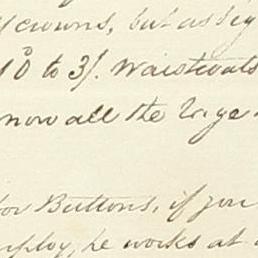 crowns, but as
to 3/. Waistcoats
now all the
for Buttons, if you
employ, he works at